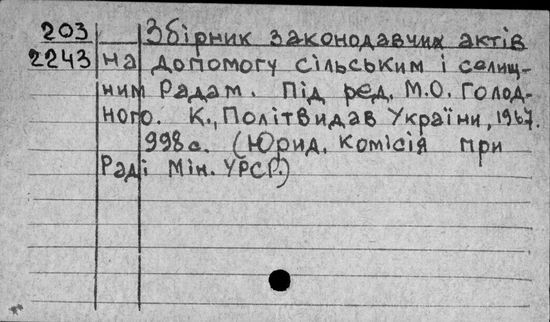 203 Збірник законодавчих актів
2243 на допомогу сільським і селищ-
ним Радам. Під ред. М.О. Голод-
ного. К., Політвидав України, 1967.
998 с. (Юрид. комісія при
Раді Мін. УРСР.)